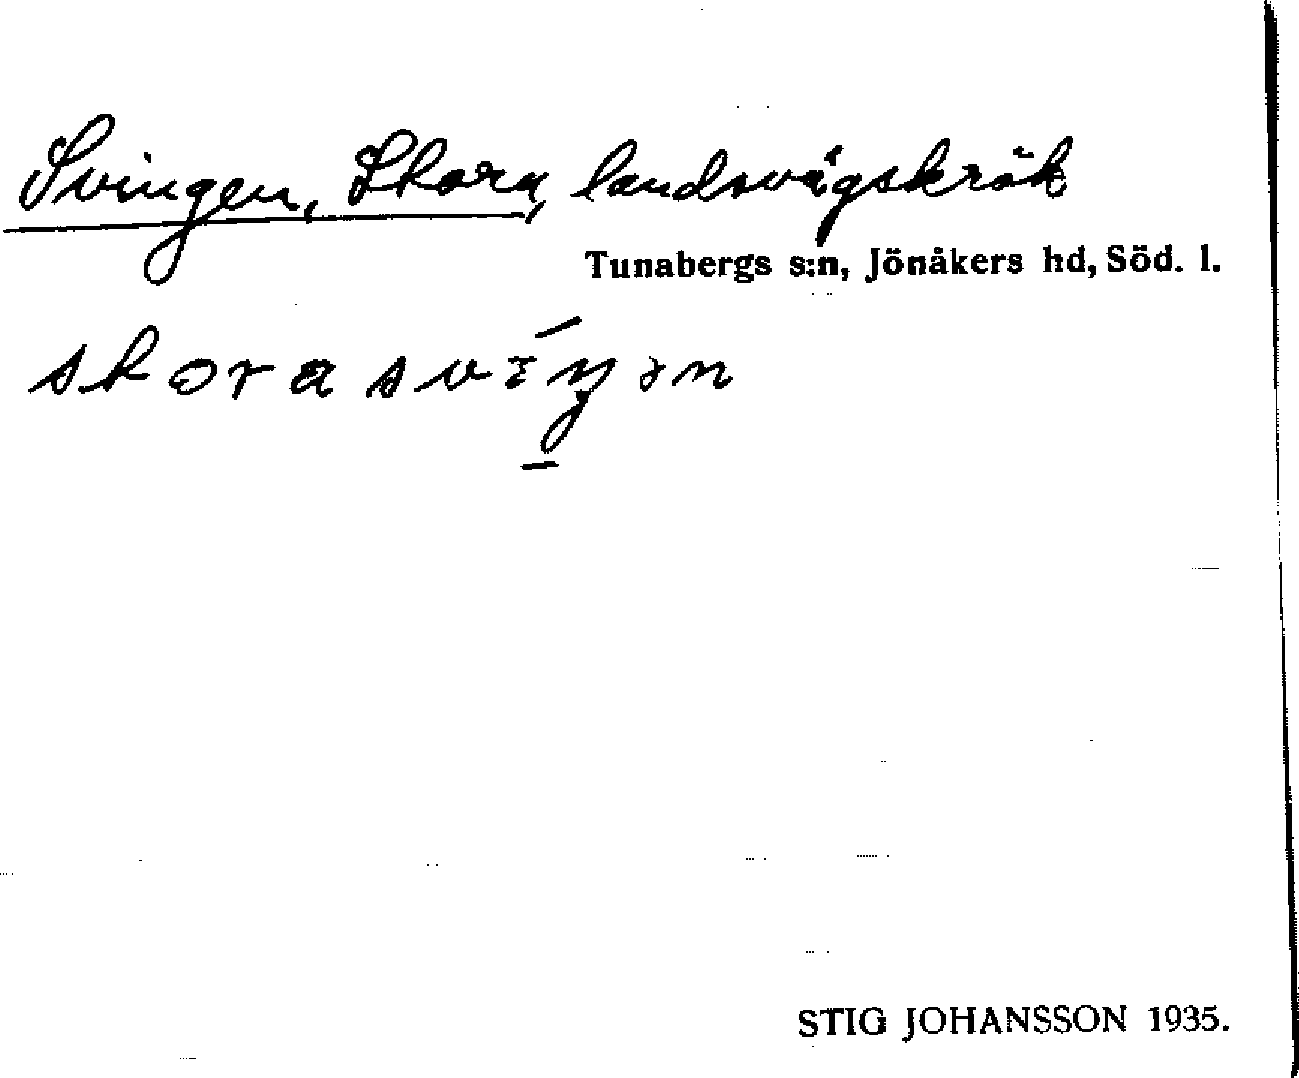 Svingen, Skora, landsvägskrök
Tunabergs s:n, Jönåkers hd, Söd. l.
STIG JOHANSSON 1935.